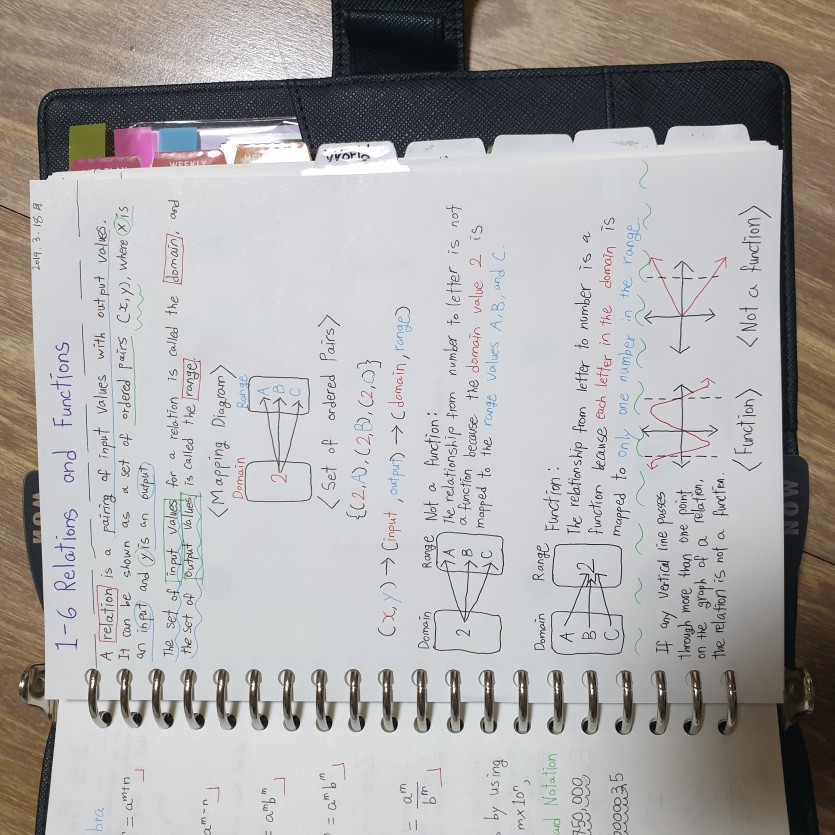 2019. 3. 18 月
1-6 Relations and Functions
A relation is a pairing of input values with output values.
It can be shown as a set of ordered pairs (x,y), where x is
an input and y is an output.
The set of input values for a relation is called the domain, and
the set of output values is called the range.
<Mapping Diagram>
Domain Range
2 A
B
C
<Set of ordered Pairs>
{(2,A), (2,B), (2,C)}
(x, y) → (input, output) → (domain, range)
Domain Range
2 A
B
C
Not a function:
The relationship from number to letter is not
a function because the domain value 2 is
mapped to the range values A, B, and C.
Domain Range
A
B 2
C
Function:
The relationship from letter to number is a
function because each letter in the domain is
mapped to only one number in the range.
If any vertical line passes
through more than one point
on the graph of a relation,
the relation is not a function.
<Function>
<Not a function>
WEEKLY
NOW
NOW
bra
= aᵐ⁺ⁿ
aᵐ⁻ⁿ
= aᵐbᵐ
= aᵐbᵐ
= aᵐ/bᵐ
by using
m×10ⁿ,
ard Notation
750,000
0000035